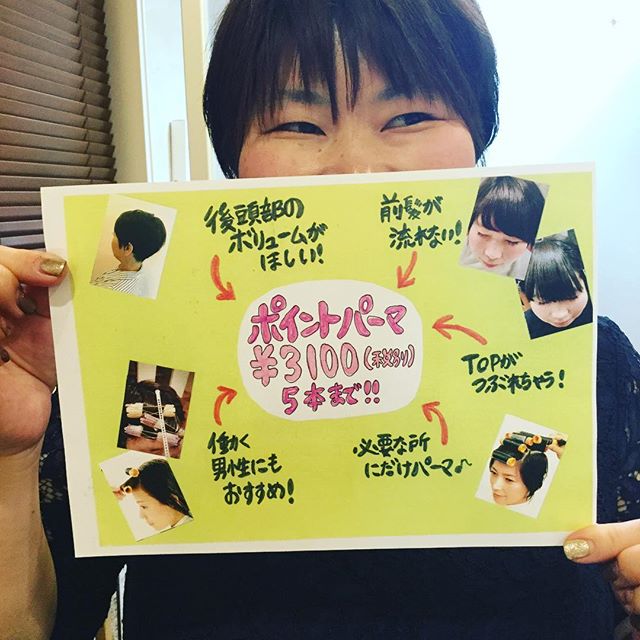 後頭部の
ボリュームが
ほしい!
前髪が
流れない!
ポイントパーマ
¥3100(税別)
5本まで!!
TOPが
つぶれちゃう!
働く
男性にも
おすすめ!
必要な所
にだけパーマ♪